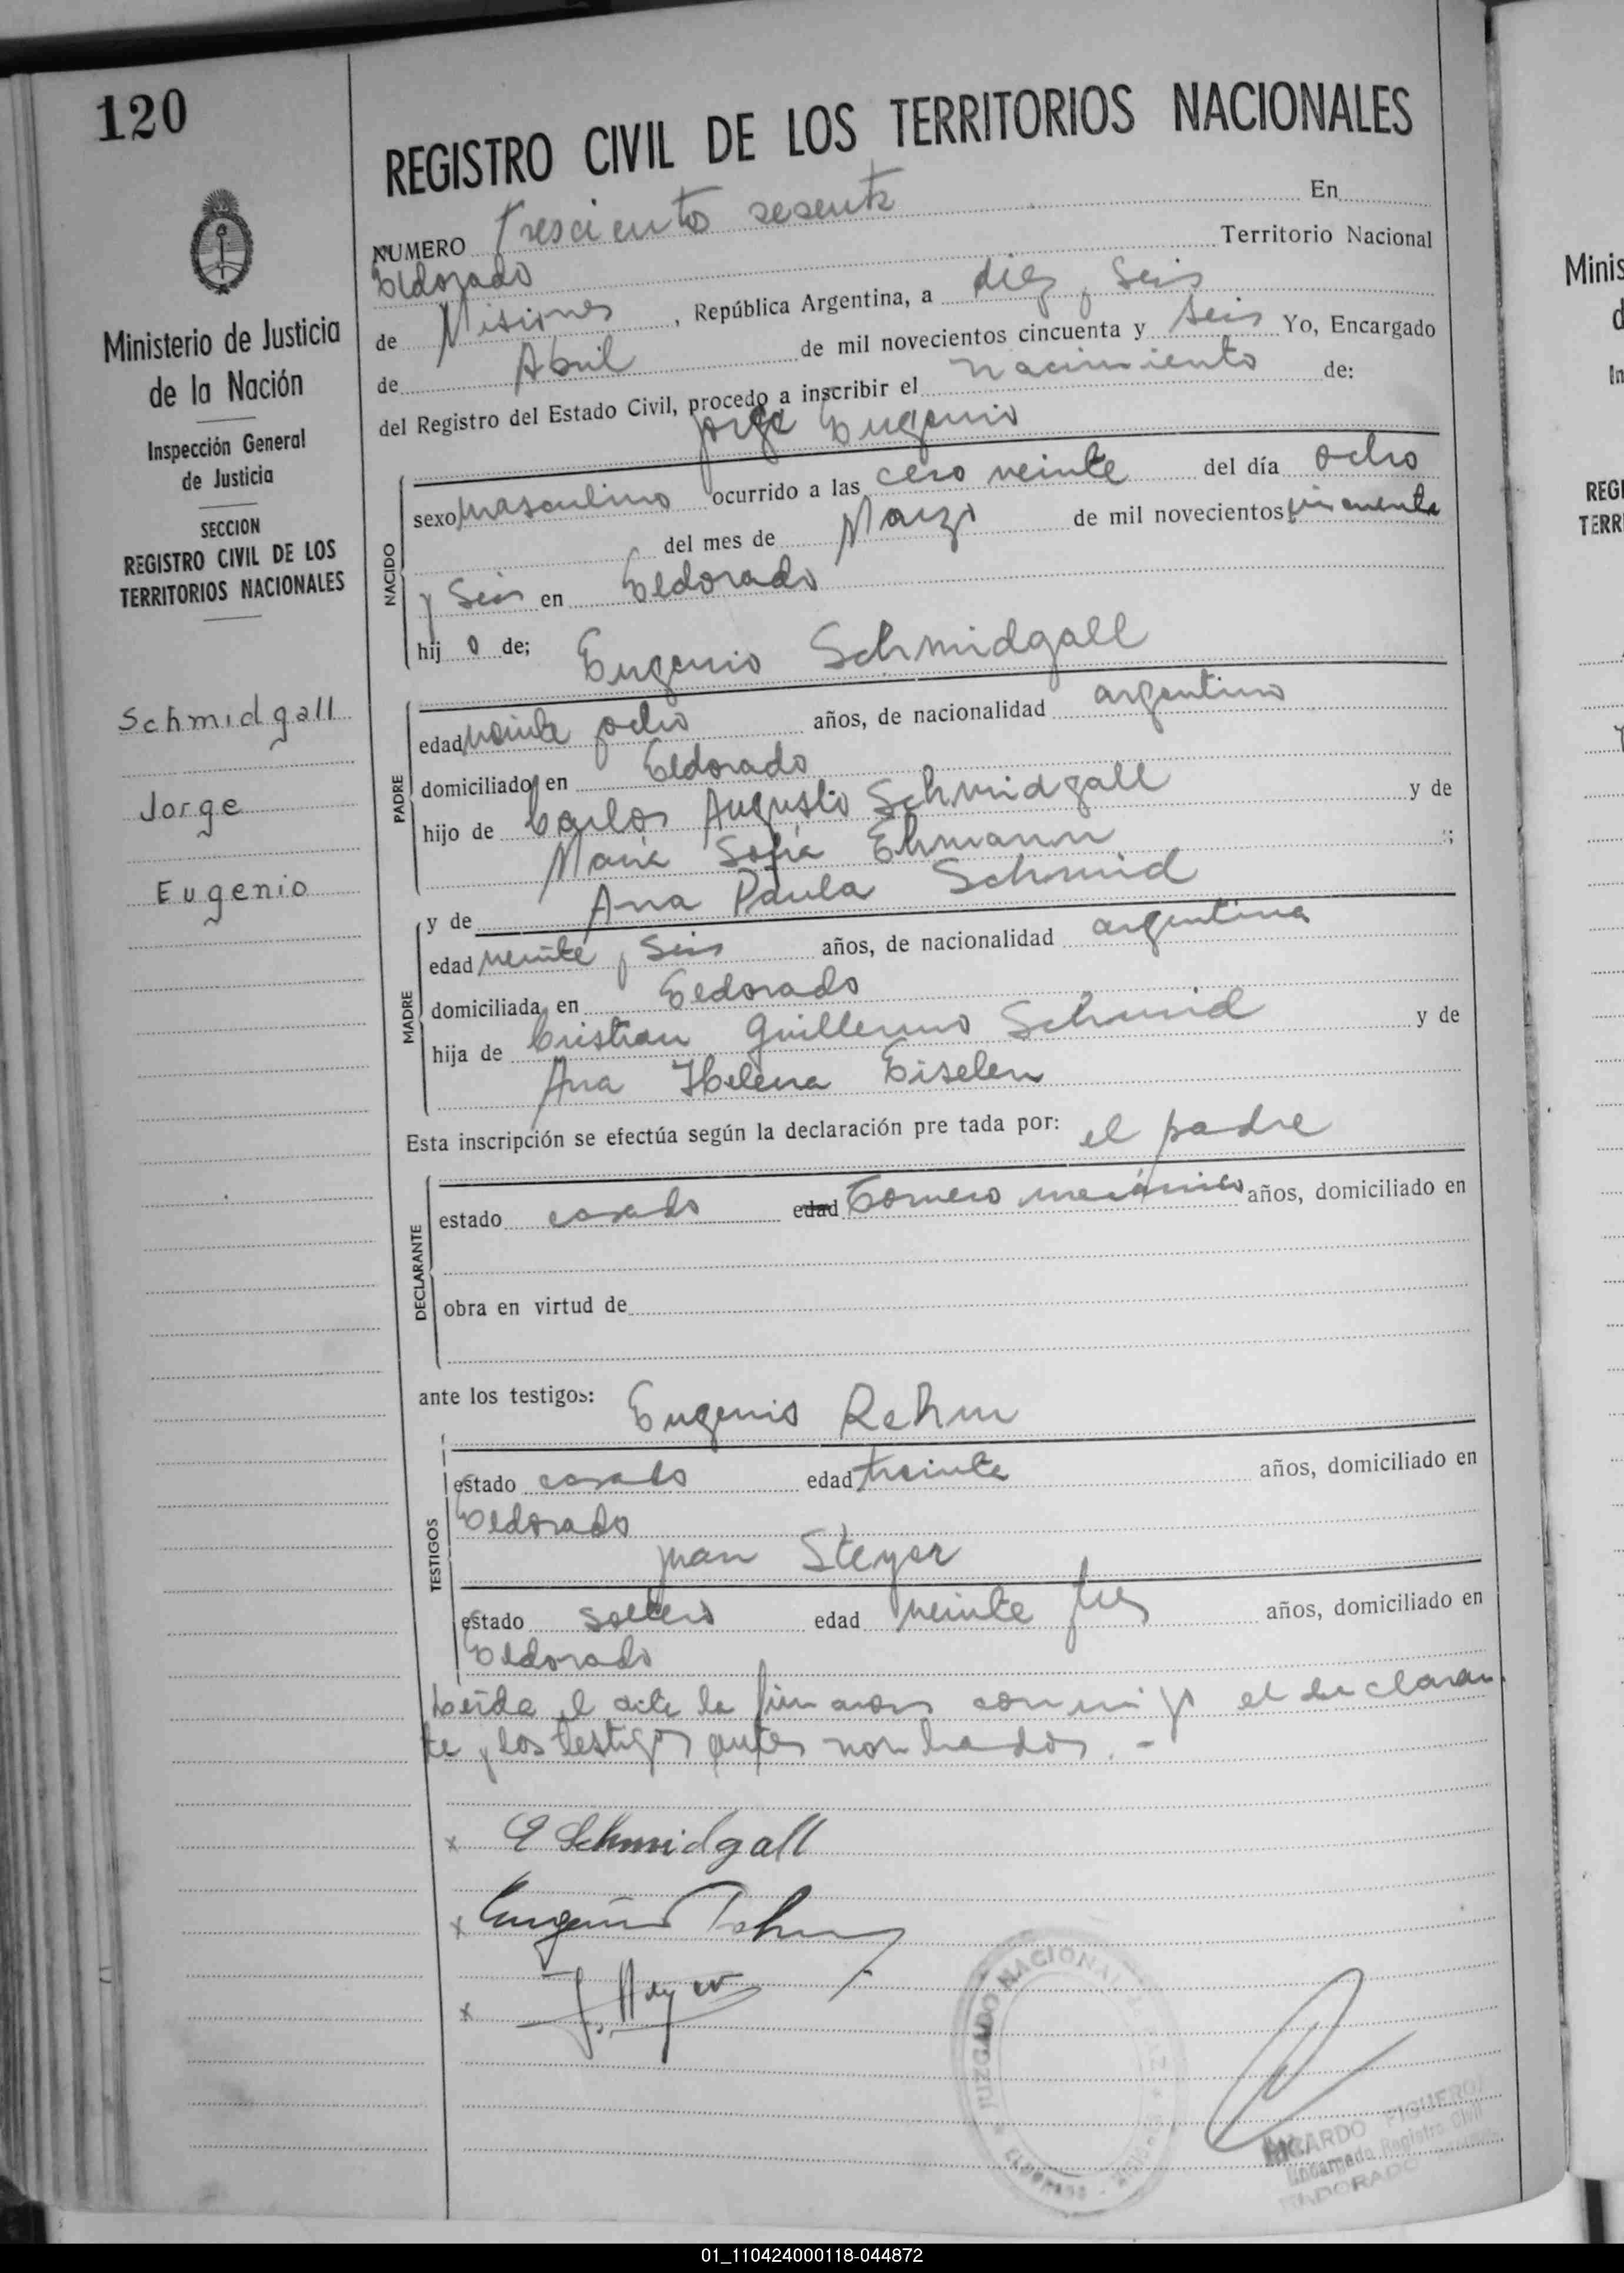 120
REGISTRO CIVIL DE LOS TERRITORIOS NACIONALES
NUMERO Tresciento sesenta En
Eldorado Territorio Nacional
de Misiones, República Argentina, a diez y Seis
de Abril de mil novecientos cincuenta y seis Yo, Encargado
del Registro del Estado Civil, procedo a inscribir el nacimiento de:
Jorge Eugenio
NACIDO
sexo masculino ocurrido a las cero veinte del día ocho
del mes de Marzo de mil novecientos cincuenta
y Seis en Eldorado
hij o de; Eugenio Schmidgall
PADRE
edad veinte y ocho años, de nacionalidad argentino
domiciliado en Eldorado
hijo de Carlos Augusto Schmidgall y de
María Sofía Ehmann ;
y de Ana Paula Schmid
MADRE
edad veinte y Seis años, de nacionalidad argentina
domiciliada en Eldorado
hija de Cristian Guillermo Schmid y de
Ana Helena Eiselen
Esta inscripción se efectúa según la declaración pre tada por: el padre
DECLARANTE
estado casado edad Tornero mecánico años, domiciliado en
obra en virtud de
ante los testigos: Eugenio Rehm
TESTIGOS
estado casado edad treinta años, domiciliado en
Eldorado
Juan Steyer
estado soltero edad veinte y tres años, domiciliado en
Eldorado
Leída el acta la firmaron conmigo el declaran
te y los testigos antes nombrados. -
x E Schmidgall
x Eugenio Rehm
x J. Steyer
JUZGADO NACIONAL DE PAZ
ELDORADO - MISIONES
RICARDO FIGUEROA
Encargado Registro Civil
ELDORADO
Ministerio de Justicia
de la Nación
Inspección General
de Justicia
SECCION
REGISTRO CIVIL DE LOS
TERRITORIOS NACIONALES
Schmidgall
Jorge
Eugenio
Minis
d
In
REGI
TERR
01_110424000118-044872